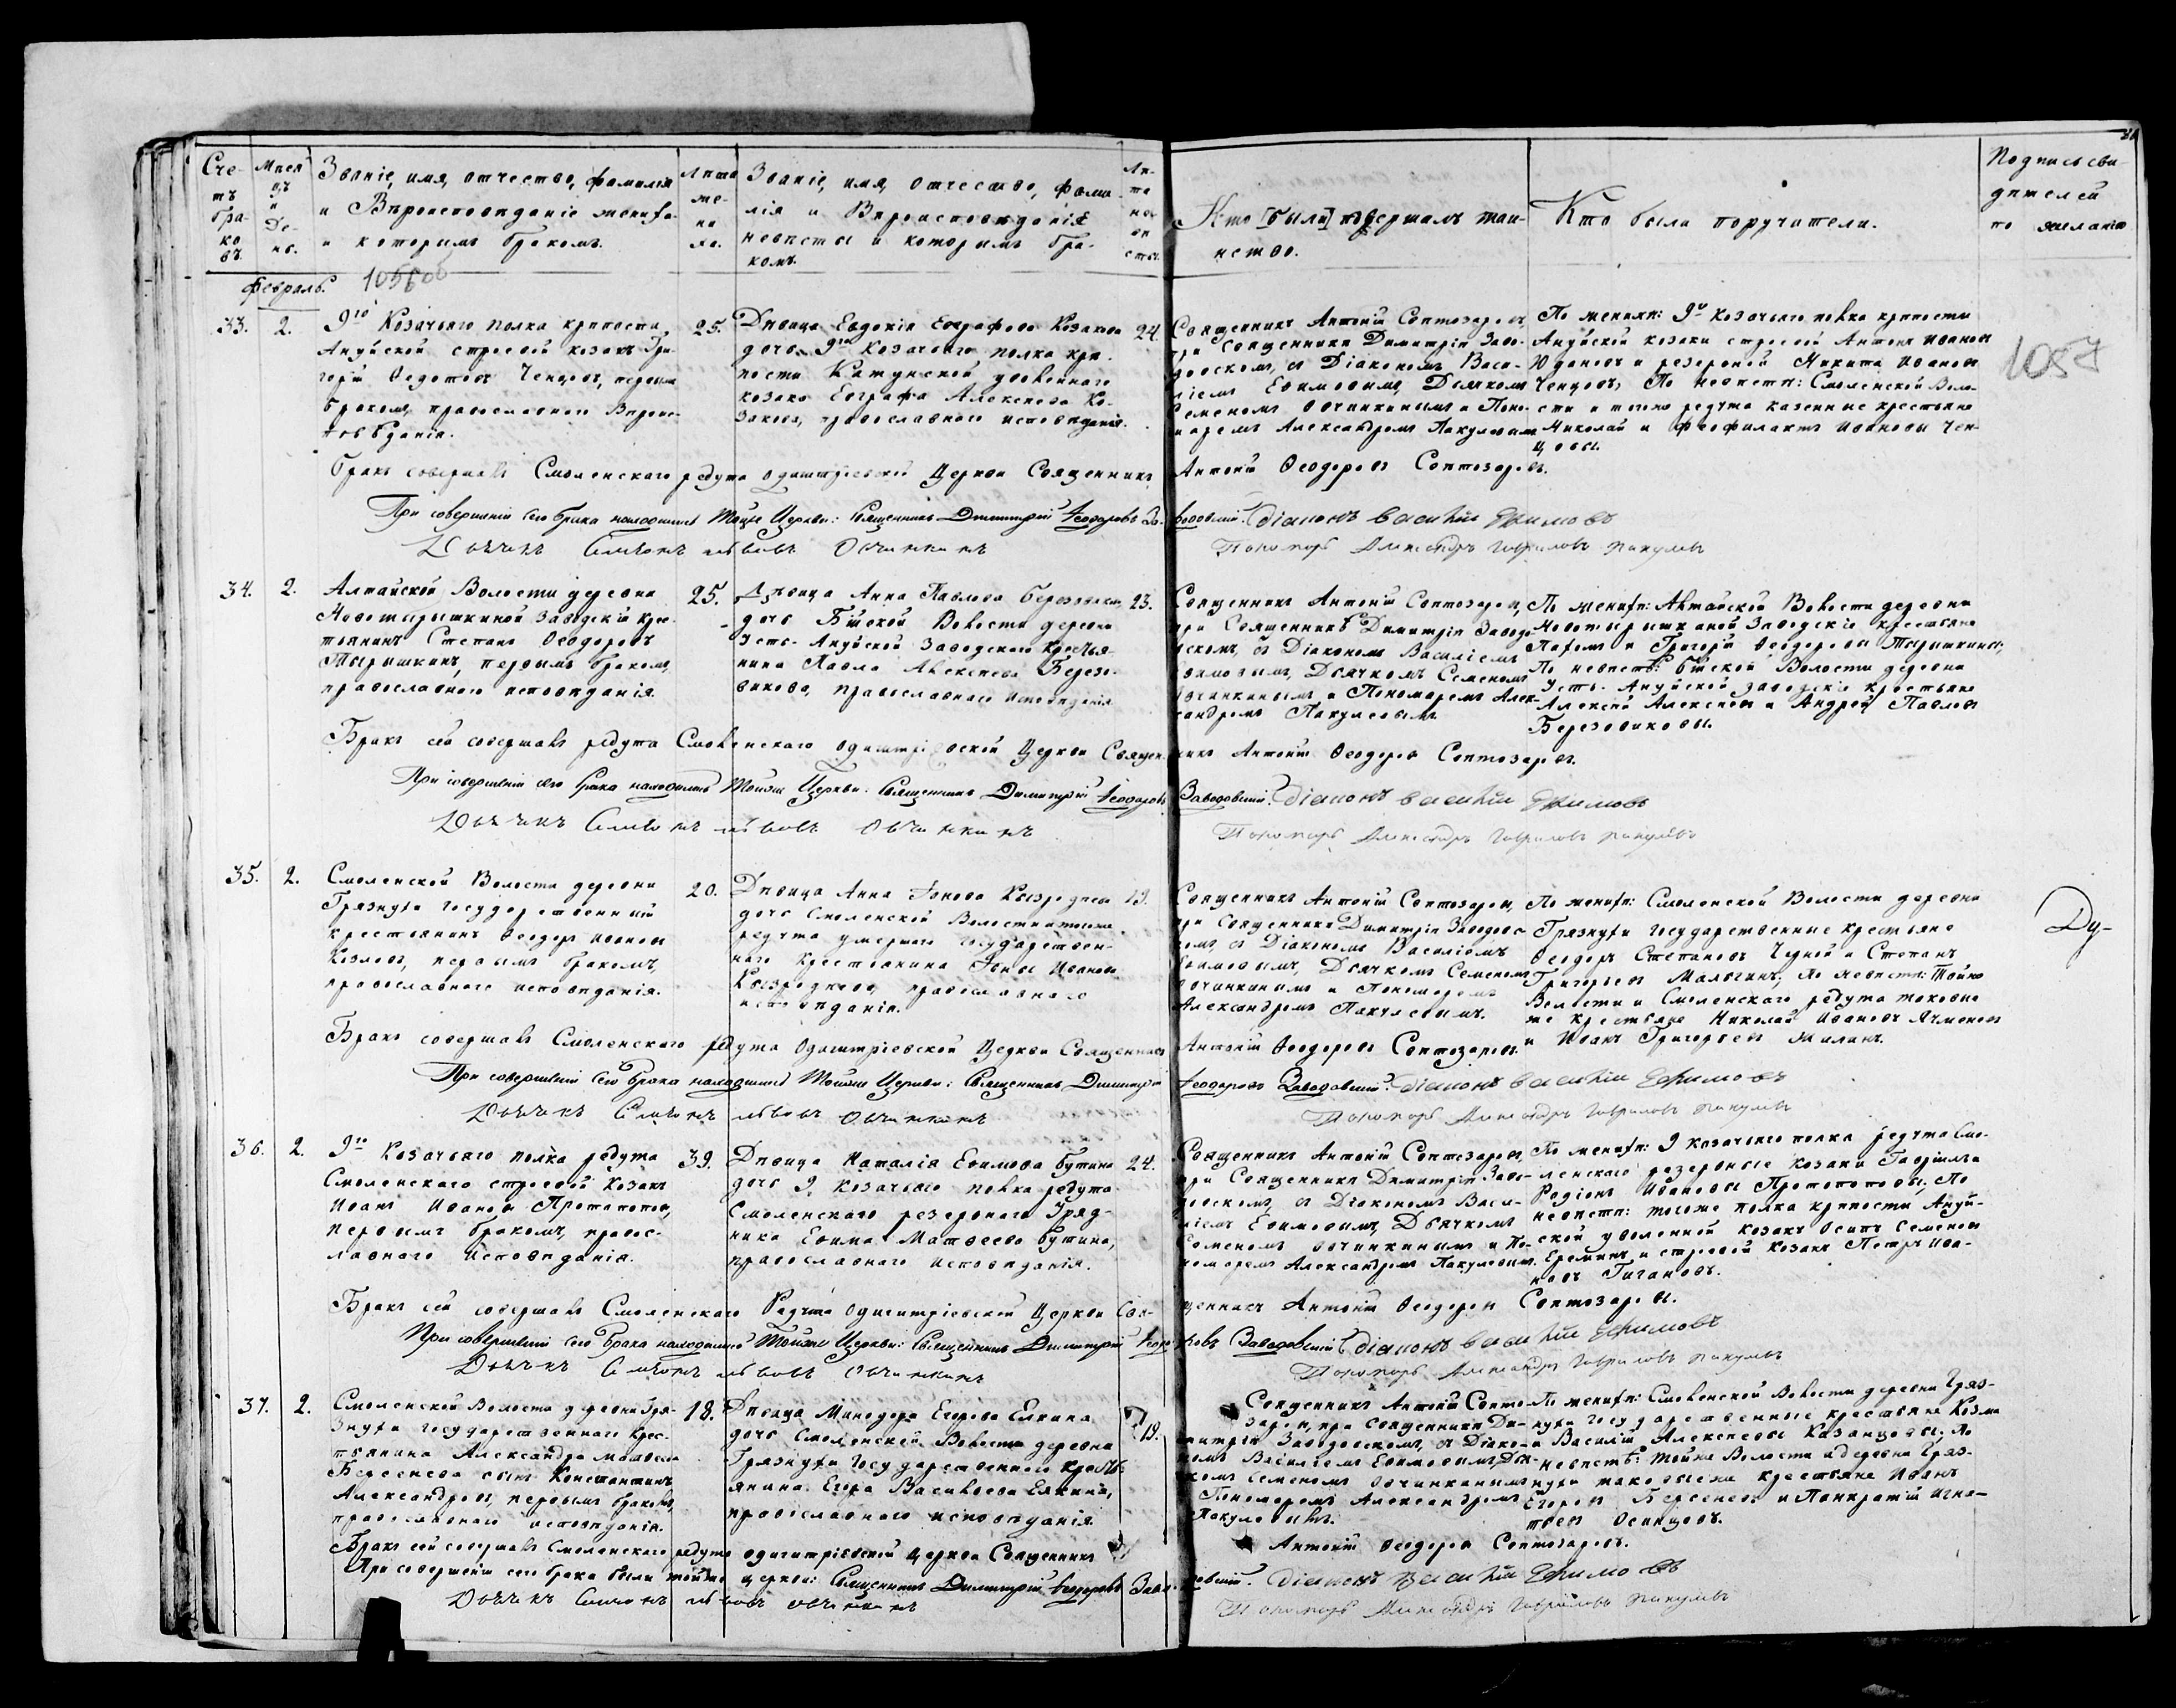 Сче-
тъ
бра-
ко
въ.
Мѣся
цъ
и
Де-
нь.
Званіе, имя, отчество, фамилія
и Вѣроисповѣданіе жениха
и которымъ бракомъ.
Лѣта
же-
ни
ха.
Званіе, имя, отчество, фами-
лія и Вѣроисповѣданія
невѣсты и которымъ бра-
комъ.
Лѣ-
та
не-
вѣ
сты.
Кто совершалъ таи-
нство.
Кто были поручители.
Подпись сви
дѣтелей
по желанію
Февраль.
33.
2.
9го Козачьяго полка крѣпости
Ануйской строевой козакъ Гри-
горій Ѳедотовъ Ченцовъ, первымъ
бракомъ, православнаго Вѣроис-
повѣданія.
25.
Дѣвица Евдокія Евграфова Козакова
дочь 9го Козачьяго полка крѣ-
пости Катунской уволеннаго
козака Евграфа Алексѣева Ко-
закова, православнаго исповѣданія.
24.
Священникъ Антоній Синтозаровъ
при Священникѣ Димитріѣ Заво-
довскомъ, съ Діакономъ Васи-
ліемъ Ефимовымъ, Дьячкомъ
Семеномъ Овчинкинымъ и Поно-
маремъ Александромъ Пакулевымъ
По женихѣ: 9го козачьяго полка крѣпости
Ануйской козаки строевой Антонъ Ивановъ
Юдановъ и резервной Никита Ивановъ
Ченцовъ; По невѣстѣ: Смоленской Воло-
сти и того редута казенные крестьяне
Николай и Феофилактъ Ивановы Чен-
цовы.
1057
Бракъ совершалъ Смоленскаго редута Одигитріевской Церкви Священникъ Антоній Ѳеодоровъ Синтозаровъ.
При совершеніи сего брака находились тойже Церкви: Священникъ Димитрій Ѳеодоровъ Заводовскій. Діаконъ Василій Ефимовъ
Дьячекъ Симеонъ Львовъ Овчинкинъ Пономарь Александръ Гавриловъ Пакулевъ
34.
2.
Алтайской Волости деревни
Новотырышкиной Заводскій Крес-
тьянинъ Степанъ Ѳеодоровъ
Тырышкинъ, первымъ бракомъ,
православнаго исповѣданія.
25.
Дѣвица Анна Павлова Березовикова
дочь Бійской Волости деревни
Усть-Ануйской Заводскаго Крестья-
нина Павла Алексѣева Березо-
викова, православнаго исповѣданія
23.
Священникъ Антоній Синтозаровъ,
при Священникѣ Димитріѣ Заводо-
вскомъ, съ Діакономъ Василіемъ
Ефимовымъ, Дьячкомъ Семеномъ
Овчинкинымъ и Пономаремъ Алек-
сандромъ Пакулевымъ.
По женихѣ: Алтайской Волости деревни
Новотырышкиной Заводскіе крестьяне
и Григорій Ѳеодоровы Тырышкины;
По невѣстѣ: Бійской Волости деревни
Усть-Ануйской заводскіе крестьяне
Алексѣй Алексѣевъ и Андрей Павловъ
Березовиковы.
Бракъ сей совершалъ редута Смоленскаго Одигитріевской Церкви Священникъ Антоній Ѳеодоровъ Синтозаровъ.
При совершеніи сего брака находились тойже Церкви: Священникъ Димитрій Ѳеодоровъ Заводовскій. Діаконъ Василій Ефимовъ
Дьячекъ Симеонъ Львовъ Овчинкинъ Пономарь Александръ Гавриловъ Пакулевъ
35.
2.
Смоленской Волости деревни
Грязнухи Государственный
крестьянинъ Ѳеодоръ Ивановъ
Козловъ, первымъ бракомъ,
православнаго исповѣданія.
20.
Дѣвица Анна Іонова
дочь Смоленской Волости и тогоже
редута умершаго Государствен-
наго Крестьянина Іоны Иванова
православнаго
исповѣданія.
19.
Священникъ Антоній Синтозаровъ,
при Священникѣ Димитріѣ Заводовс-
комъ, съ Діакономъ Василіемъ
Ефимовымъ, Дьячкомъ Семеномъ
Овчинкинымъ и Пономаремъ
Александромъ Пакулевымъ.
По женихѣ: Смоленской Волости деревни
Грязнухи Государственные крестьяне
Ѳеодоръ Степановъ Черной и Степанъ
Григорьевъ Малыгинъ; По невѣстѣ: Тойже
Волости и Смоленскаго редута таковые
же крестьяне Николай Ивановъ Ячменевъ
и Иванъ Григорьевъ Жилинъ.
Ду-
Бракъ совершалъ Смоленскаго редута Одигитріевской Церкви Священникъ Антоній Ѳеодоровъ Синтозаровъ.
При совершеніи сего брака находились тойже Церкви: Священникъ Димитрій Ѳеодоровъ Заводовскій. Діаконъ Василій Ефимовъ
Дьячекъ Симеонъ Львовъ Овчинкинъ Пономарь Александръ Гавриловъ Пакулевъ
36.
2.
9го Козачьяго полка редута
Смоленскаго строевой Козакъ
Иванъ Ивановъ Протопоповъ,
первымъ бракомъ, правос-
лавнаго исповѣданія.
39.
Дѣвица Наталія Ефимова Бутина
дочь 9. Козачьяго полка редута
Смоленскаго резервнаго Уряд-
ника Ефима Матвеева Бутина,
православнаго исповѣданія.
24.
Священникъ Антоній Синтозаровъ,
при Священникѣ Димитріѣ Заво-
довскомъ, съ Діакономъ Васи-
ліемъ Ефимовымъ, Дьячкомъ
Семеномъ Овчинкинымъ и По-
номаремъ Александромъ Пакулевымъ.
По женихѣ: 9 козачьяго полка редута Смо-
ленскаго резервные козаки Гавріилъ и
Родіонъ Ивановы Протопоповы; По
невѣстѣ: тогоже полка крѣпости Ануй-
ской уволенной козакъ Осипъ Семеновъ
Ереминъ и строевой козакъ Петръ Ива-
новъ Гигановъ.
Бракъ сей совершалъ Смоленскаго Редута Одигитріевской Церкви Священникъ Антоній Ѳеодоровъ Синтозаровъ.
При совершеніи сего брака находились тойже Церкви: Священникъ Димитрій Ѳеодоровъ Заводовскій Діаконъ Василій Ефимовъ
Дьячекъ Симеонъ Львовъ Овчинкинъ Пономарь Александръ Гавриловъ Пакулевъ
37.
2.
Смоленской Волости деревни Гря-
знухи Государственнаго Крес-
тьянина Александра Матвеева
Берсенева сынъ Константинъ
Александровъ, первымъ бракомъ,
православнаго исповѣданія.
18.
Дѣвица Минодора Егорова Елкина
дочь Смоленской Волости деревни
Грязнухи Государственнаго крестья-
янина Егора Васильева Елкина,
православнаго исповѣданія.
19.
Священникъ Антоній Синто-
заровъ, при Священникѣ Ди-
митріѣ Заводовскомъ, съ Діако-
номъ Василіемъ Ефимовымъ, Дья-
чкомъ Семеномъ Овчинкинымъ
Пономаремъ Александромъ
Пакулевымъ.
По женихѣ: Смоленской Волости деревни Гряз-
нухи Государственные крестьяне Козма
и Василій Алексѣевы Казанцовы; По
невѣстѣ: тойже Волости и деревни Гряз-
нухи таковыеже крестьяне Иванъ
Егоровъ Берсеневъ и Панкратій Игна-
тьевъ Осинцовъ.
Бракъ сей совершалъ Смоленскаго редута Одигитріевской Церкви Священникъ Антоній Ѳеодоровъ Синтозаровъ.
При совершеніи сего брака были тойже церкви: Священникъ Димитрій Ѳеодоровъ Заводовскій. Діаконъ Василій Ефимовъ
Дьячекъ Симеонъ Львовъ Овчинкинъ Пономарь Александръ Гавриловъ Пакулевъ